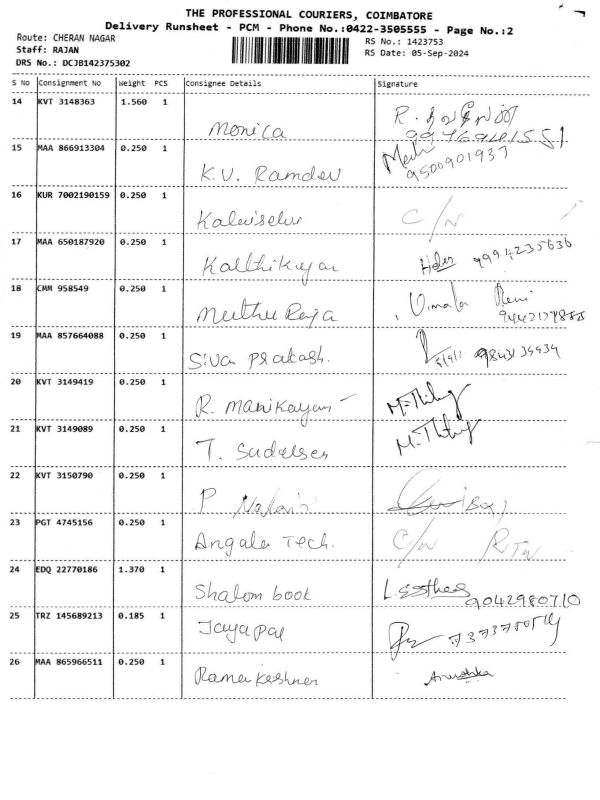 THE PROFESSIONAL COURIERS, COIMBATORE
Delivery Runsheet - PCM - Phone No.:0422-3505555 - Page No.:2
Route: CHERAN NAGAR
Staff: RAJAN
DRS No.: DCJB142375302
RS No.: 1423753
RS Date: 05-Sep-2024
S No Consignment No Weight PCS Consignee Details Signature
14 KVT 3148363 1.560 1 Monica R.
15 MAA 866913304 0.250 1 K.V. Ramdev 9500901937
16 KUR 7002190159 0.250 1 Kalaiselvi C/N
17 MAA 650187920 0.250 1 Kalthikeyan 9994235636
18 CMM 958549 0.250 1 Muthu Raja Vimala
19 MAA 857664088 0.250 1 Siva Prakash.
20 KVT 3149419 0.250 1 R. Manikayan M-Thilug
21 KVT 3149089 0.250 1 T. Sudalses M-Thilug
22 KVT 3150790 0.250 1 P
23 PGT 4745156 0.250 1 Angala Tech. C/N
24 EDQ 22770186 1.370 1 Shalom book L. Esther 9042980710
25 TRZ 145689213 0.185 1 Jayapal
26 MAA 865966511 0.250 1 Anushka